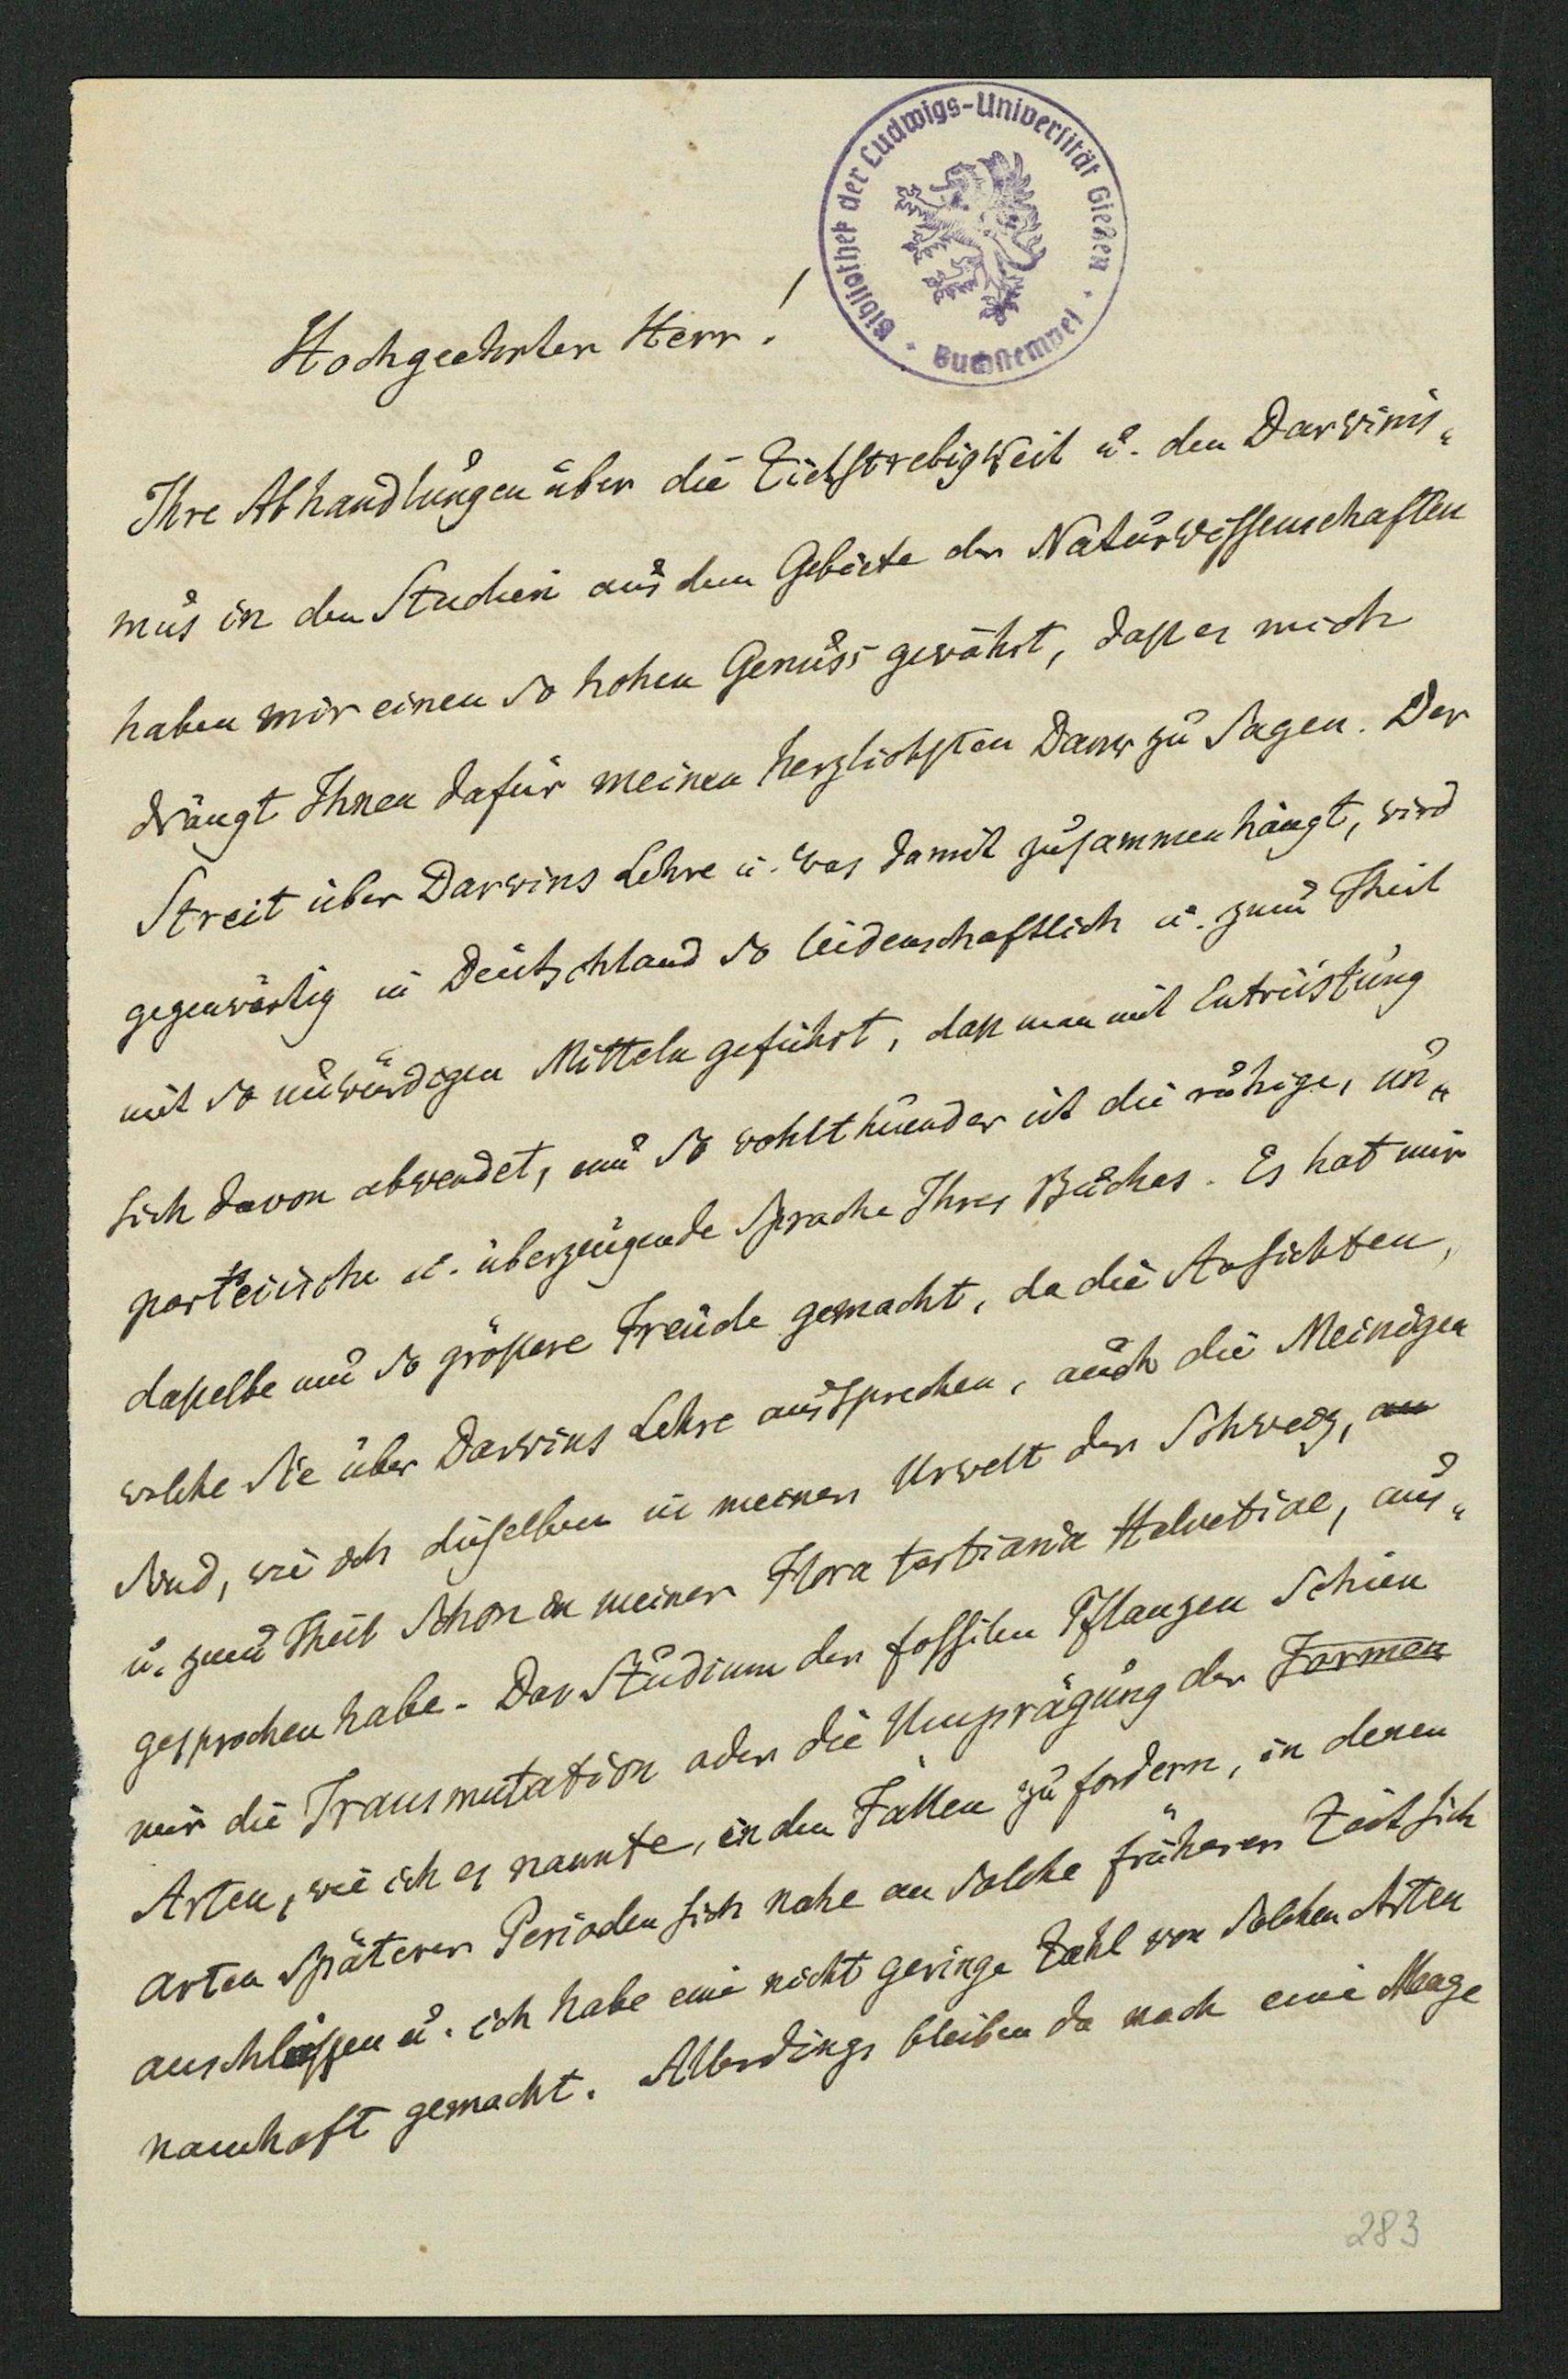 Bibliothek der Ludwigs-Universität Gießen
Buchstempel
Hochgeehrter Herr!
Ihre Abhandlungen über die Zielstrebigkeit u. den Darwinis-
mus in den Studien aus dem Gebiete der Naturwissenschaften
haben mir einen so hohen Genuss gewährt, dass es mich
drängt Ihnen dafür meinen herzlichsten Dank zu sagen. Der
Streit über Darwins Lehre u. was damit zusammenhängt, wird
gegenwärtig in Deutschland so leidenschaftlich u. zum Theil
mit so unwürdigen Mitteln geführt, dass man mit Entrüstung
sich davon abwendet, um so wohlthuender ist die ruhige, un-
parteiische u. überzeugende Sprache Ihres Buches. Es hat mir
dasselbe um so grössere Freude gemacht, da die Ansichten,
welche Sie über Darwins Lehre aussprechen, auch die Meinigen
sind, wie ich dieselben in meiner Urwelt der Schweiz, an
u. zum Theil schon in meiner Flora tertiaria Helvetiae, aus-
gesprochen habe. Das Studium der fossilen Pflanzen schien
mir die Transmutation oder die Umprägung der Formen
Arten, wie ich es nannte, in den Fällen zu fordern, in denen
Arten späterer Perioden sich nahe an solche früherer Zeit sich
anschliessen u. ich habe eine nicht geringe Zahl von solchen Arten
namhaft gemacht. Allerdings bleiben da noch eine Menge
283